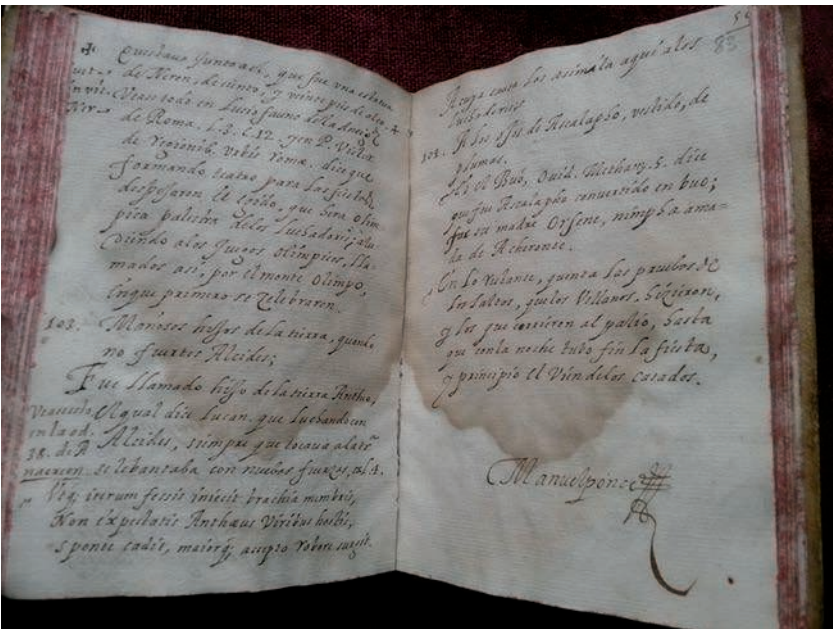 Cuidaua Juntoael, que fue vna estatua
de Neron, de ciento, y veinte pies de alto.
Vease todo en Lucio fauno
de Roma. L. 3. c. 12. y en P. Victor
de regionib. vrbis romæ. dice que
formando teatro para las fiestas
desposaron
pica palestra delos luchadores; alu-
diendo alos Juegos Olimpicos, lla-
mados asi, por el monte Olimpo,
en que primero se Zelebraron.
103. Mañosos hijos de la tierra, quando
no fuertes Alcides;
Fue llamado hijo de la tierra Antheo,
Vease
en la od.
38. de A
naercon.
Al qual dice Lucan. que luchando con
Alcides, siempre que tocaua a la
se lebantaba con nuebas fuerzas, al. 4.
Vtq; iterum fessis iniecit brachia membris,
Non expectatis Anthæus Viribus hostis,
sponte cadit, maiorq; accepto robore surgit.
83
A cuya causa los asimila aqui a los
luchadores
A los ojos de Ascalapho, vestido, de
plumas.
Es el Buo, Ouid. Metham. 5. dice
que fue Ascalapho conuertido en buo;
fue su madre Orfene, nimpha ama-
da de Acheronte.
En lo restante, quenta las pruebas de
los saltos, que los Villanos, hizieron,
y los que corrieron al palio, hasta
que con la noche tubo fin la fiesta,
y principio el Vien de los casados.
Manuel ponce